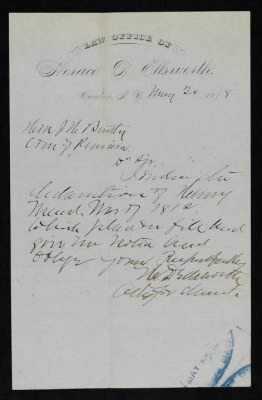 LAW OFFICE OF
Horace D. Ellsworth.
Canton, N. Y. May 20 1878
Hon J. A. Bentley
Com. of Pensions
Dr Sir
I enclose the
declaration of Henry
Mead. War of 1812
which please file and
give me notice and
oblige yours Respectfully
H. D. Ellsworth
Atty for